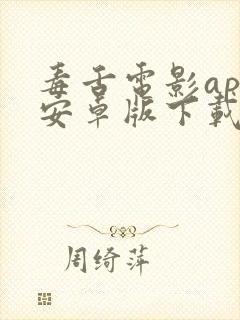 毒舌电影ap
安卓版下载
周绮萍